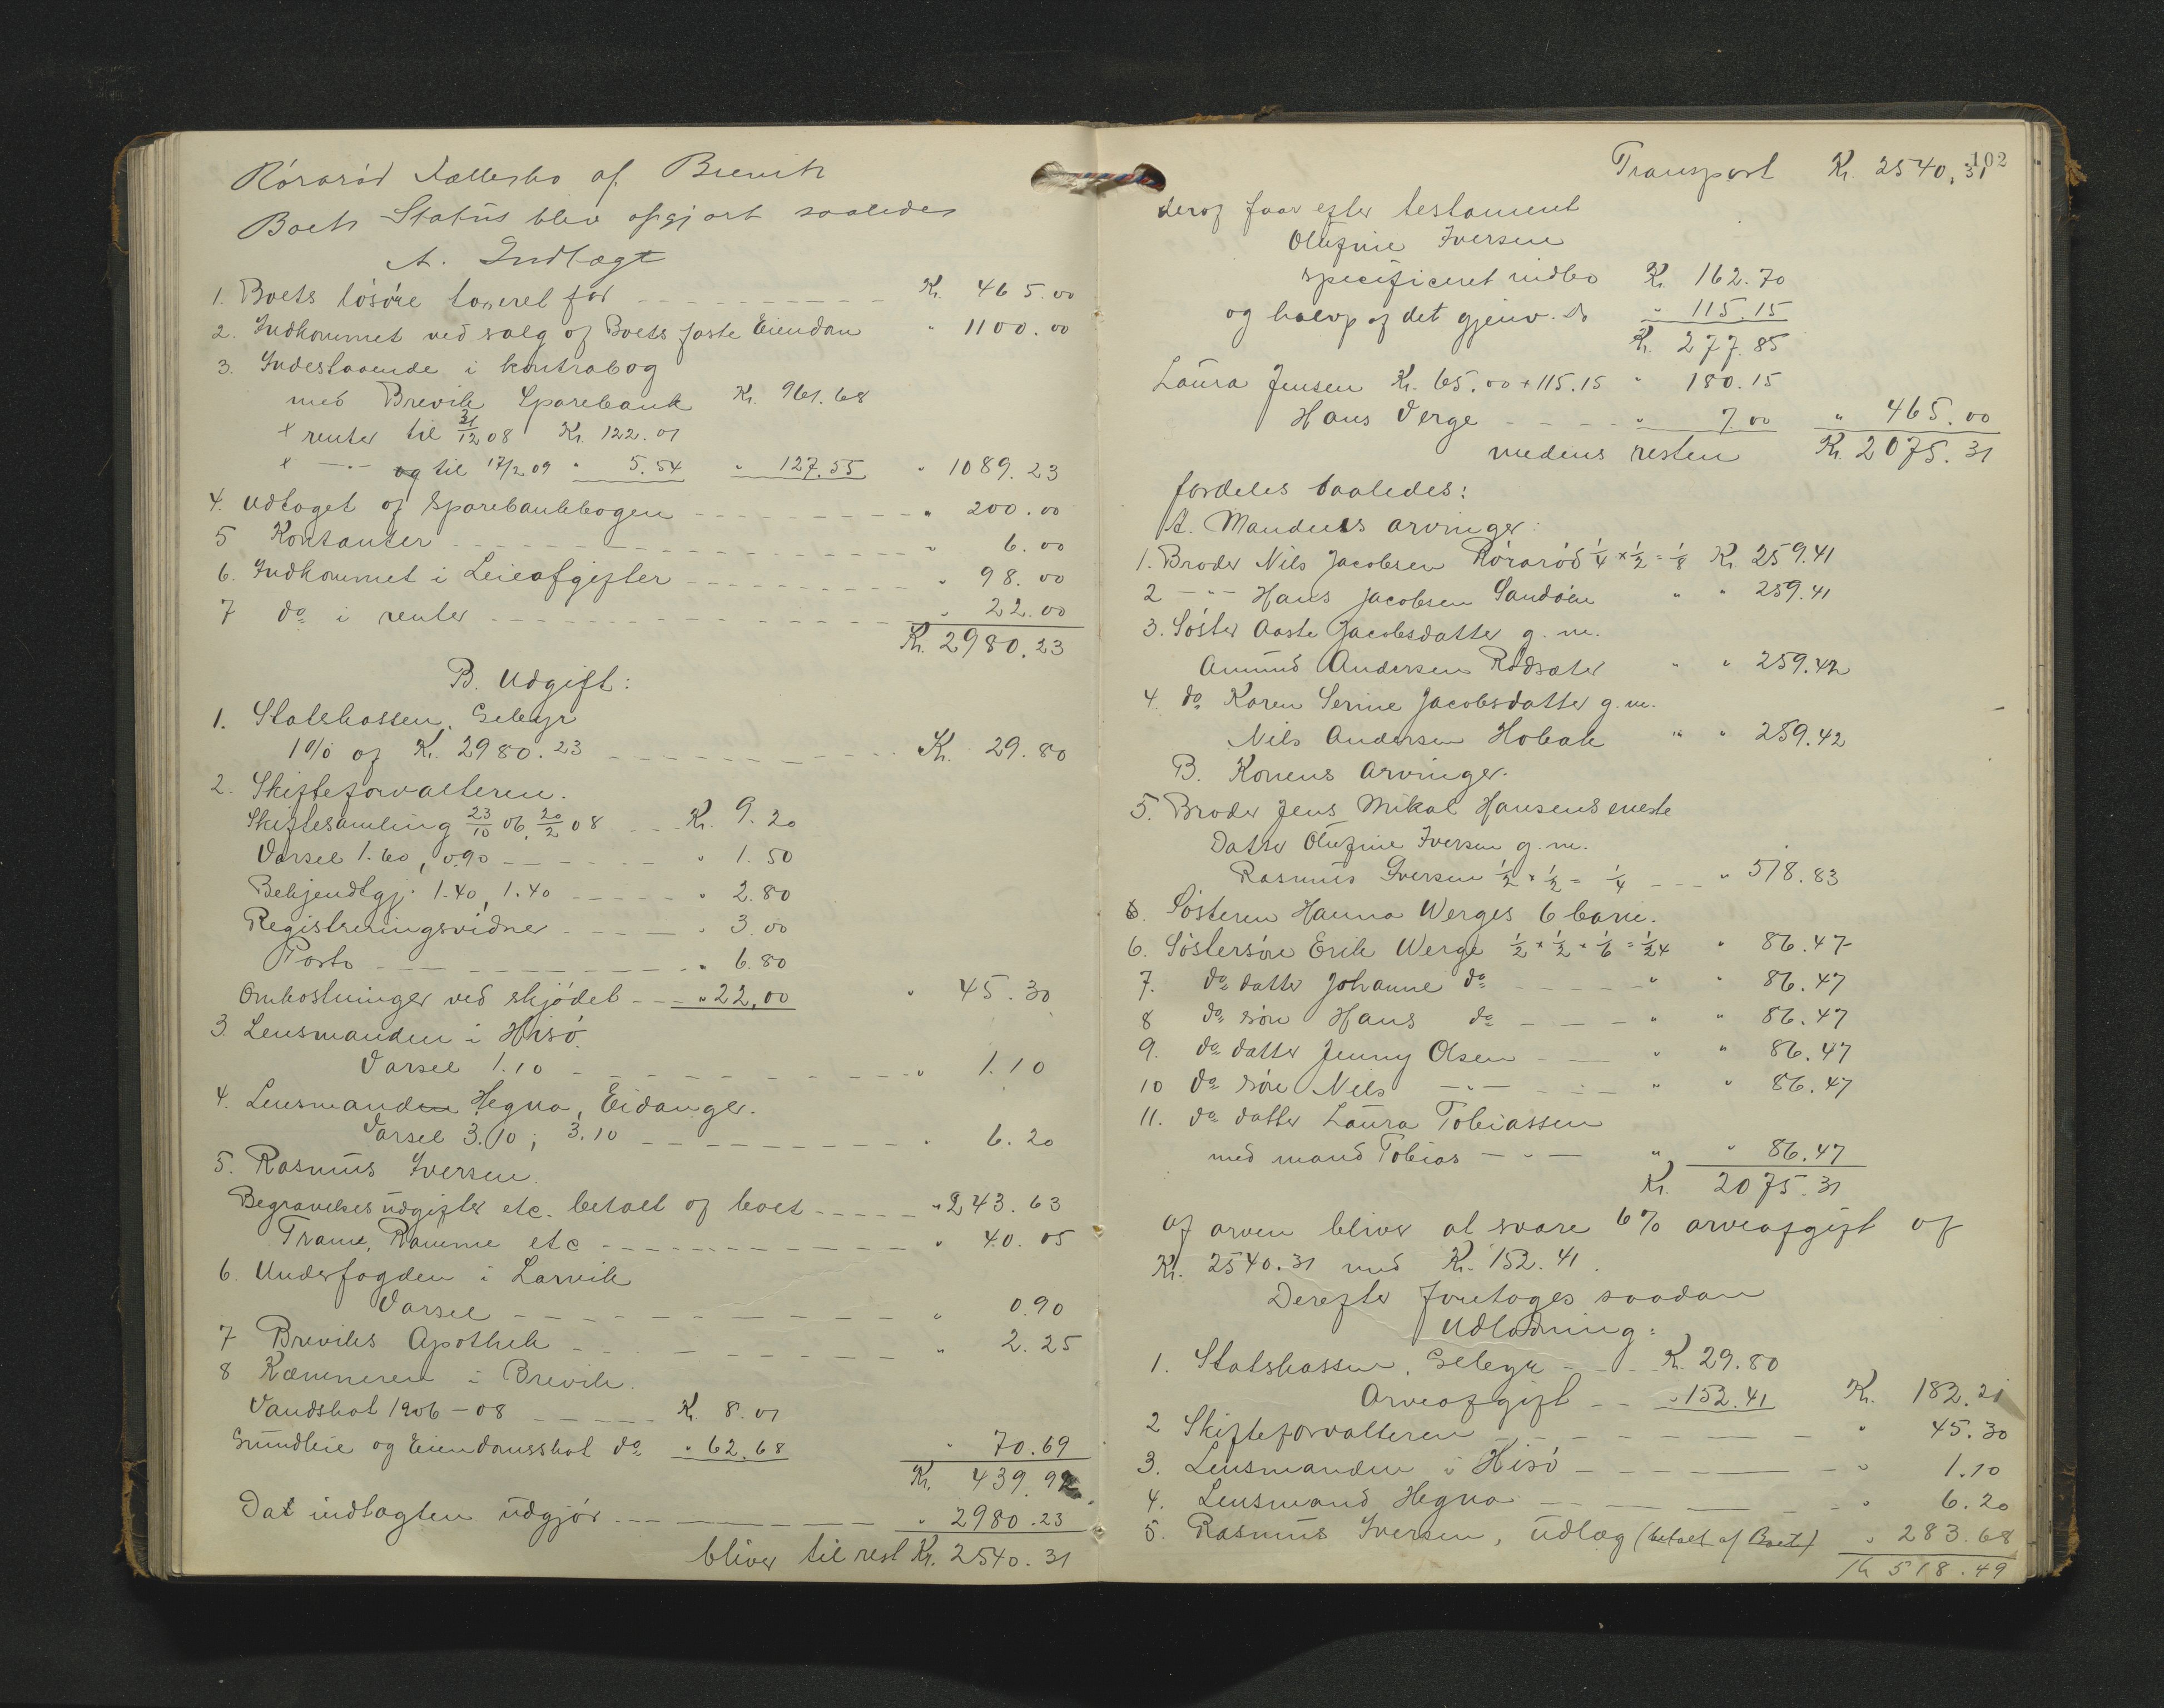 Rörarød Fællesbo af Brevik
Boets Status blev opgjort saaledes
A. Indtægt
1. Boets lösöre taxeret for Kr. 465.00
2. Indkommet ved salg af Boets faste Eiendom " 1100.00
3. Indestaaende i kontrabog
med Brevik Sparebank Kr. 961.68
+ renter til 31/12 08 Kr. 122.01
+ -"- og til 17/2 09 " 5.54 " 127.55 " 1089.23
4. Udtaget af Sparebankbogen " 200.00
5 Kontanter " 6.00
6. Indkommet i Leieafgifter " 98.00
7 do i renter " 22.00
Kr. 2980.23
B. Udgift:
1. Statskassen, Gebyr
1 % af Kr. 2980.23 Kr. 29.80
2. Skifteforvalteren.
Skiftesamling 23/10 06, 20/2 08 Kr. 9.20
Varsel 1.60, 0.90 " 1.50
Bekjendtgj. 1.40, 1.40 " 2.80
Registreringsvidner " 3.00
Porto " 6.80
Omkostninger ved skjödet " 22,00 " 45.30
3. Lensmanden i Hisö.
Varsel 1.10 " 1.10
4. Lensmanden Hegna, Eidanger.
Varsel 3.10; 3.10 " 6.20
5. Rasmus Iversen.
Begravelsesudgifter etc. betalt af boet " 243.63
Tranu, Ramme etc " 40.05
6. Underfogden i Larvik
Varsel " 0.90
7 Breviks Apothek " 2.25
8 Kæmneren i Brevik.
Vandskat 1906-08 Kr. 8.01
Grundleie og Eiendomsskat do " 62.68 " 70.69
Kr. 439.92
Da indtægten udgjör " 2980.23
bliver til rest Kr. 2540.31
102
Transport Kr. 2540.31
deraf faar efter testament
Olufine Iversen
specificeret indbo Kr. 162.70
og halvp. af det gjenv. do " 115.15
Kr. 277.85
Laura Jensen Kr. 65.00 + 115.15 " 180.15
Hans Verge " 7.00 " 465.00
medens resten Kr. 2075.31
fordeles saaledes:
A. Mandens arvinger:
1. Broder Nils Jacobsen Röraröd 1/4 x 1/2 = 1/8 Kr. 259.41
2 -"- Hans Jacobsen Sandöen " " 259.41
3. Söster Aaste Jacobsdatter g. m.
Amund Andersen Rödsæter " " 259.42
4. do Karen Serine Jacobsdatter g. m.
Nils Andersen Hobæk " " 259.42
B. Konens Arvinger.
5. Broder Jens Mikal Hansens eneste
Datter Olufine Iversen g. m.
Rasmus Iversen 1/2 x 1/2 = 1/4 " 518.83
6. Sösteren Hanna Werges 6 barn.
6. Söstersön Erik Werge 1/2 x 1/2 x 1/6 = 1/24 " 86.47
7. do datter Johanne do " " 86.47
8 do sön Hans do " " 86.47
9. do datter Jenny Olsen " " 86.47
10 do sön Nils -"- " " 86.47
11. do datter Laura Tobiassen
med mand Tobias -"- " " 86.47
Kr. 2075.31
af arven bliver at svare 6% arveafgift af
Kr. 2540.31 med Kr. 152.41.
Derefter foretages saadan
Udlodning:
1. Statskassen, Gebyr Kr. 29.80
Arveafgift " 152.41 Kr. 182.21
2 Skifteforvalteren " 45.30
3. Lensmanden i Hisö " 1.10
4. Lensmand Hegna " 6.20
5. Rasmus Iversen, udlæg (betalt af Boet) " 283.68
Kr 518.49